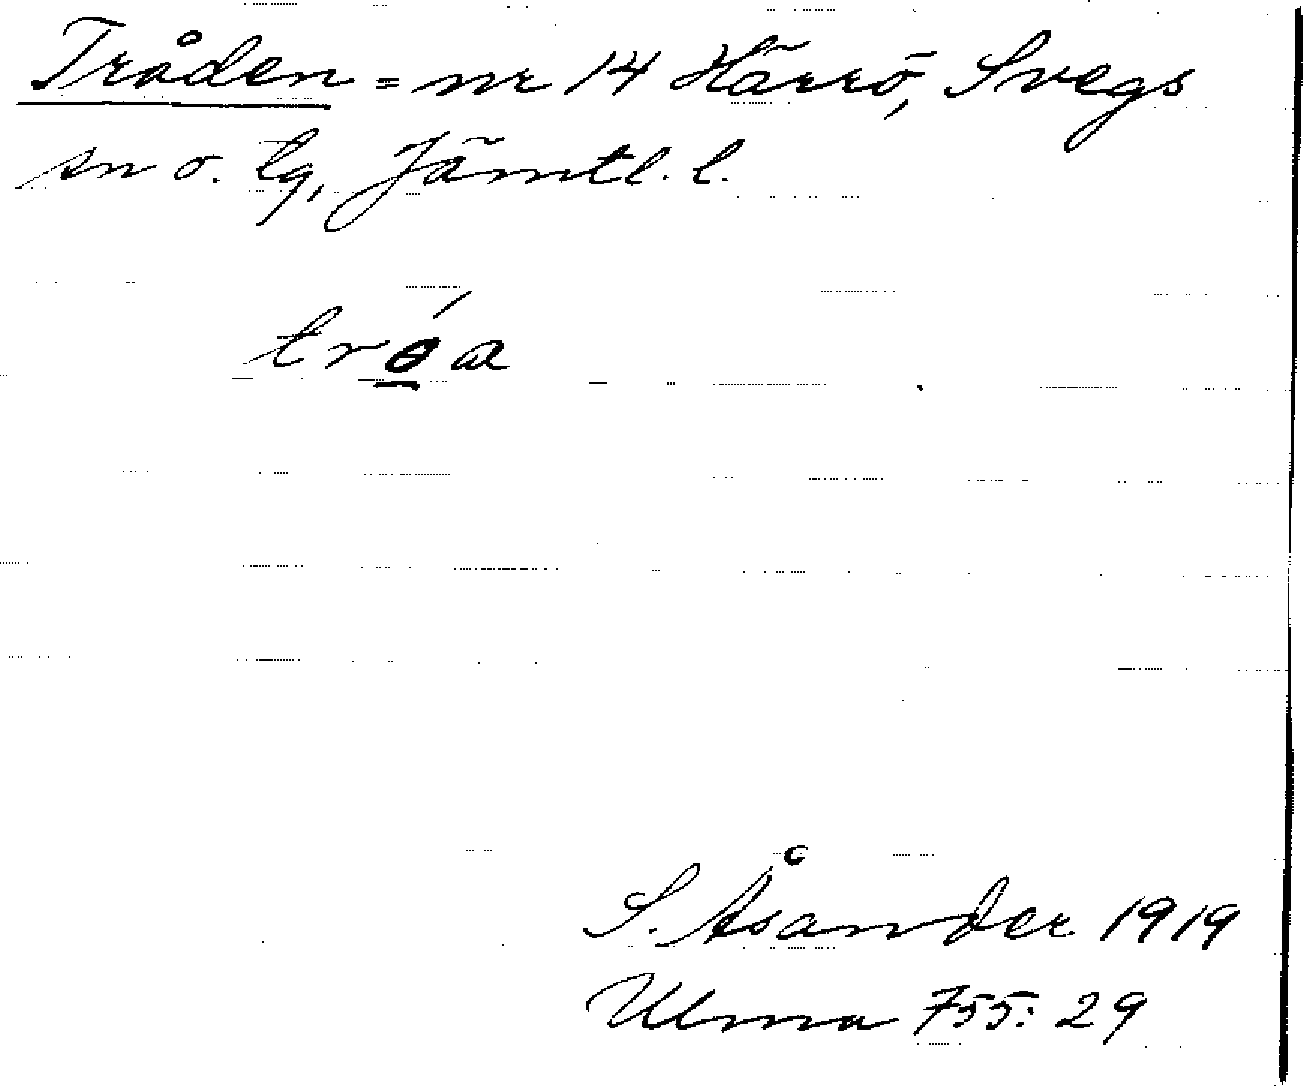 Tråden = nr 14 Härrö, Svegs
sn o. tg, Jämtl. l.
trǿ̱a
S. Åsander 1919
Ulma 755: 29